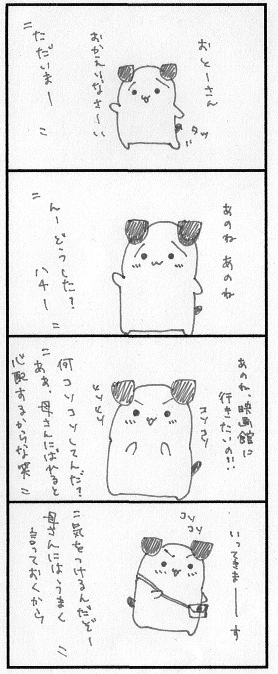 おとーさん
おかえりなさーい
タッ
=ただいまー=
あのね あのね
=んーどうした?
ハチー=
あのね、映画館に
行きたいの!!
コソコソ
ヒソヒソ
何コソコソしてんだ?
=ああ、母さんにばれると
心配するからな笑=
いってきまーーす
コソコソ
=気をつけるんだぞー
母さんにはうまく
言っておくから=